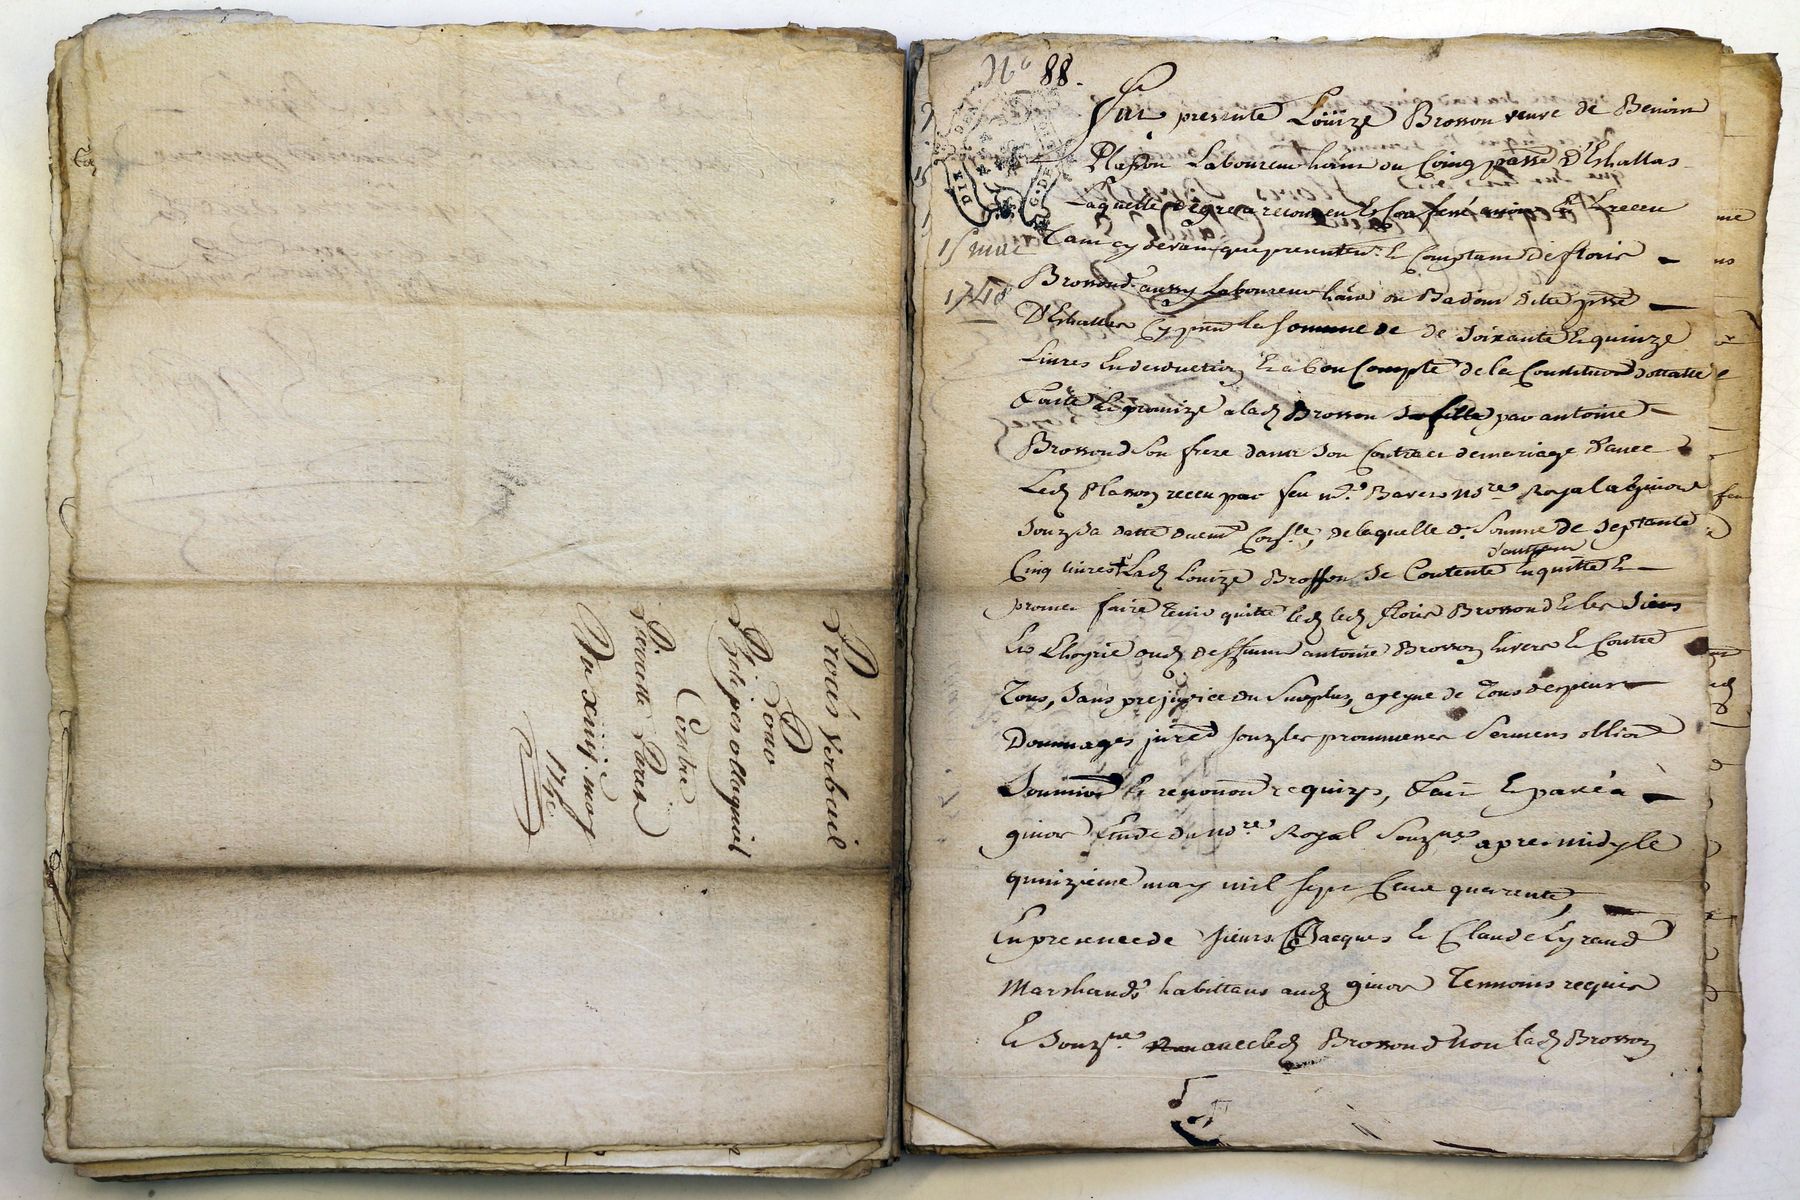 Procès verbail
Pour
Philipes olagniel
Contre
Pierrette Paret
Du xiiij. may
1740
N° 88.
15 mai
1740
Fut presente Loüize Brosson veuve de Benoin
Plasson Laboureur hânt au Coing passe D'Eshallas
Laquelle de gre a reconneu Et Confessé avoir Eu Et receu
Tant cy devant que presentem.t le Comptant de floris
Brossond aussy Laboureur hânt au Badoux dite psse
D'Eshallas cy pnt la somme de de soixante Et quinze
Livres En deduction Et a bon Compte de la Constitution dottalle
faite Et promize a lad Brosson par antoine
Brossond son frere dans son Contract de mariage d'avec
Led Plasson receu par feu m.e Barers no.re Royal a givors
souz sa datte duem.t de laquelle d. somme de septante
Cinq livres Lad Louize Brosson se Contente En quitte Et
promet faire tenir quitte led led floris Brossond Et les siens
Et L'hoyrie dud deffunt antoine Brosson Envers Et Contre
Tous, sans prejudice du surplus, a peyne de Tous despens
Dommages jured souz les prommesses sermens obliond
soumiond Et renonond requizes, fait Et passé a
givors Etude du no.re Royal souz.né apres midy le
quinzieme may mil sept Cent quarente,
En presence de sieurs Jacques Et Claude Eyraud
Marshands habittans aud givors Temmoins requis
Et souz.nés avec led Brossond non lad Brosson